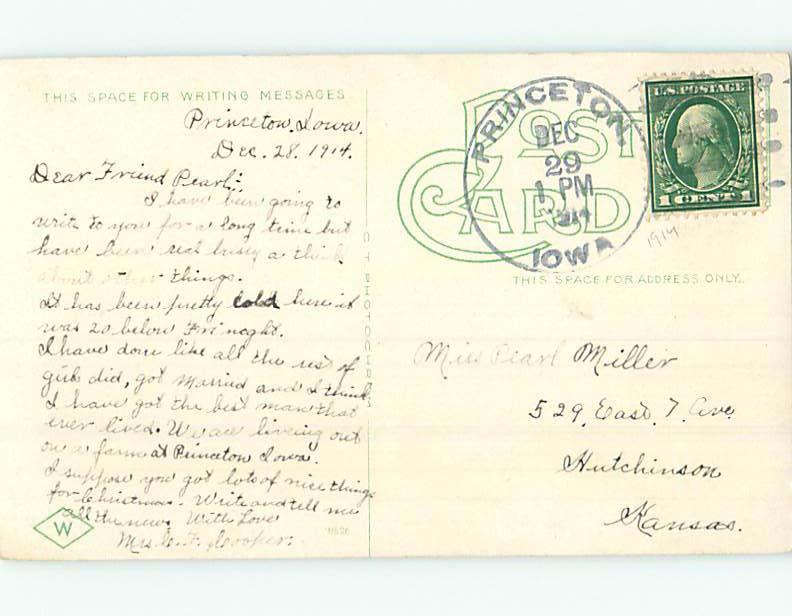 THIS SPACE FOR WRITING MESSAGES
Princeton, Iowa.
Dec. 28, 1914.
Dear Friend Pearl:
I have been going to
write to you for a long time but
have been real busy a think
about other things.
It has been pretty cold here it
was 20 below Fri neght.
I have done like all the rest of
girls did, got Married and I think
I have got the best man that
ever lived. We are liveing out
on a farm at Princeton Iowa.
I suppose you got lots of nice things
for Christmas. Write and tell me
all the news With Love
Mrs. C. F. Hooper.
W
C T PHOTOCHROM
POST CARD
PRINCETON,
DEC
29
1 PM
1914
IOWA
U.S. POSTAGE
1 CENT 1
1914
THIS SPACE FOR ADDRESS ONLY.
Miss Pearl Miller
529, East, 7, Ave
Hutchinson
Kansas.